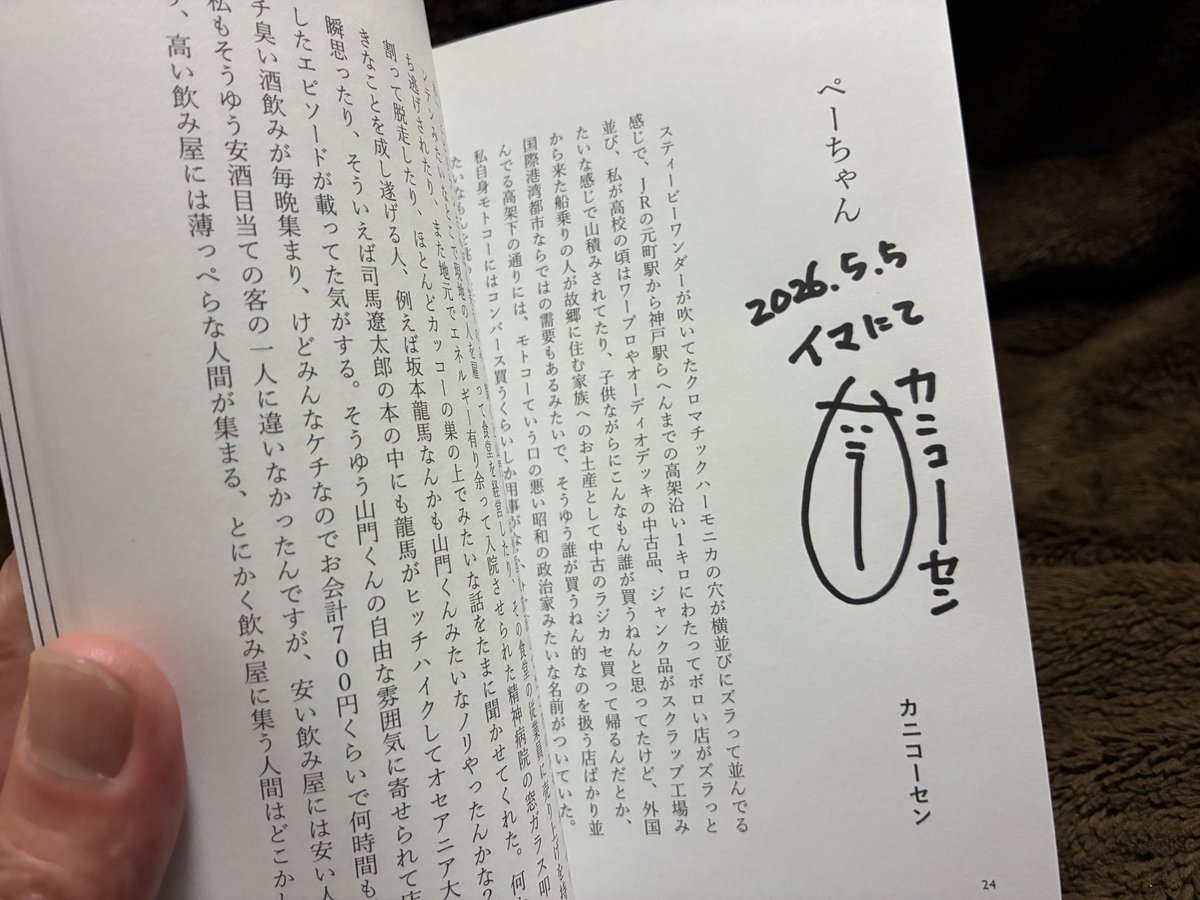 ぺーちゃん
2026.5.5
イマにて
カニコーセン
カニコーセン
スティービーワンダーが吹いてたクロマチックハーモニカの穴が横並びにズラって並んでる
感じで、JRの元町駅から神戸駅らへんまでの高架沿い1キロにわたってボロい店がズラっと
並び、私が高校の頃はワープロやオーディオデッキの中古品、ジャンク品がスクラップ工場み
たいな感じで山積みされてたり、子供ながらにこんなもん誰が買うねんと思ってたけど、外国
から来た船乗りの人が故郷に住む家族へのお土産として中古のラジカセ買って帰るんだとか、
国際港湾都市ならではの需要もあるみたいで、そうゆう誰が買うねん的なのを扱う店ばかり並
んでる高架下の通りには、モトコーていう口の悪い昭和の政治家みたいな名前がついていた。
私自身モトコーにはコンバース買うくらいしか用事がな
24
で現地の人を雇って食堂を経営したり、その食堂の従業員に売り上げを持
ち逃げされたり、また地元でエネルギー有り余って入院させられた精神病院の窓ガラス叩
割って脱走したり、ほとんどカッコーの巣の上でみたいな話をたまに聞かせてくれた。何
きなことを成し遂げる人、例えば坂本龍馬なんかも山門くんみたいなノリやったんかな?
瞬思ったり、そういえば司馬遼太郎の本の中にも龍馬がヒッチハイクしてオセアニア大
したエピソードが載ってた気がする。そうゆう山門くんの自由な雰囲気に寄せられて店
チ臭い酒飲みが毎晩集まり、けどみんなケチなのでお会計700円くらいで何時間も
私もそうゆう安酒目当ての客の一人に違いなかったんですが、安い飲み屋には安い人
高い飲み屋には薄っぺらな人間が集まる、とにかく飲み屋に集う人間はどこかし